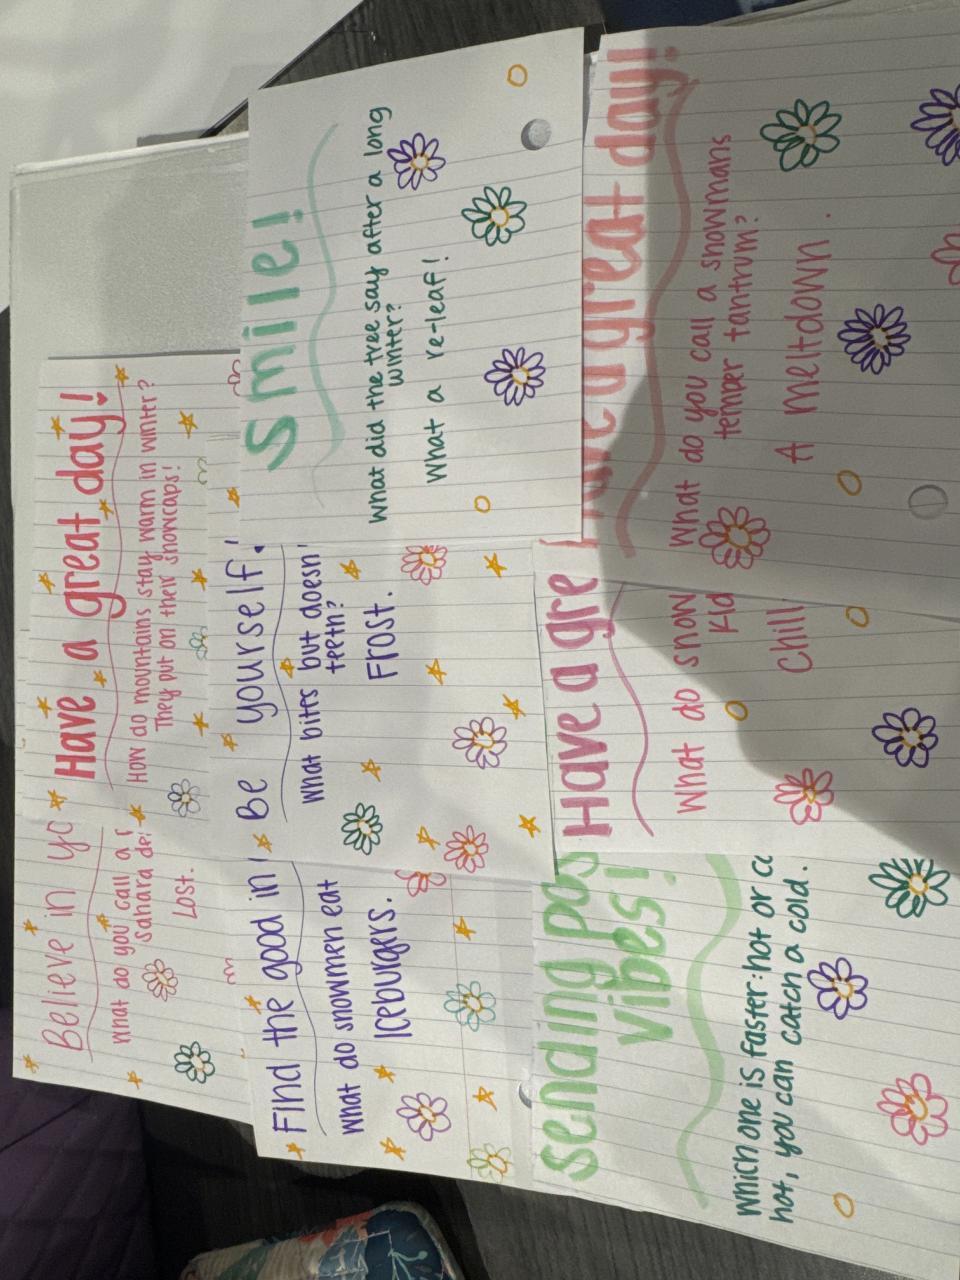 Believe in yo
What do you call a
Sahara de
Lost.
Have a great day!
How do mountains stay warm in winter?
They put on their snowcaps!
Find the good in
What do snowmen eat
Iceburgers.
Be yourself!
What bites but doesn'
teeth?
Frost.
Smile!
What did the tree say after a long
winter?
What a re-leaf!
Sending pos
vibes!
Which one is faster: hot or co
hot, you can catch a cold.
Have a gre
What do snow
Kid
Chill
have a great day!
What do you call a snowmans
temper tantrum?
A meltdown.